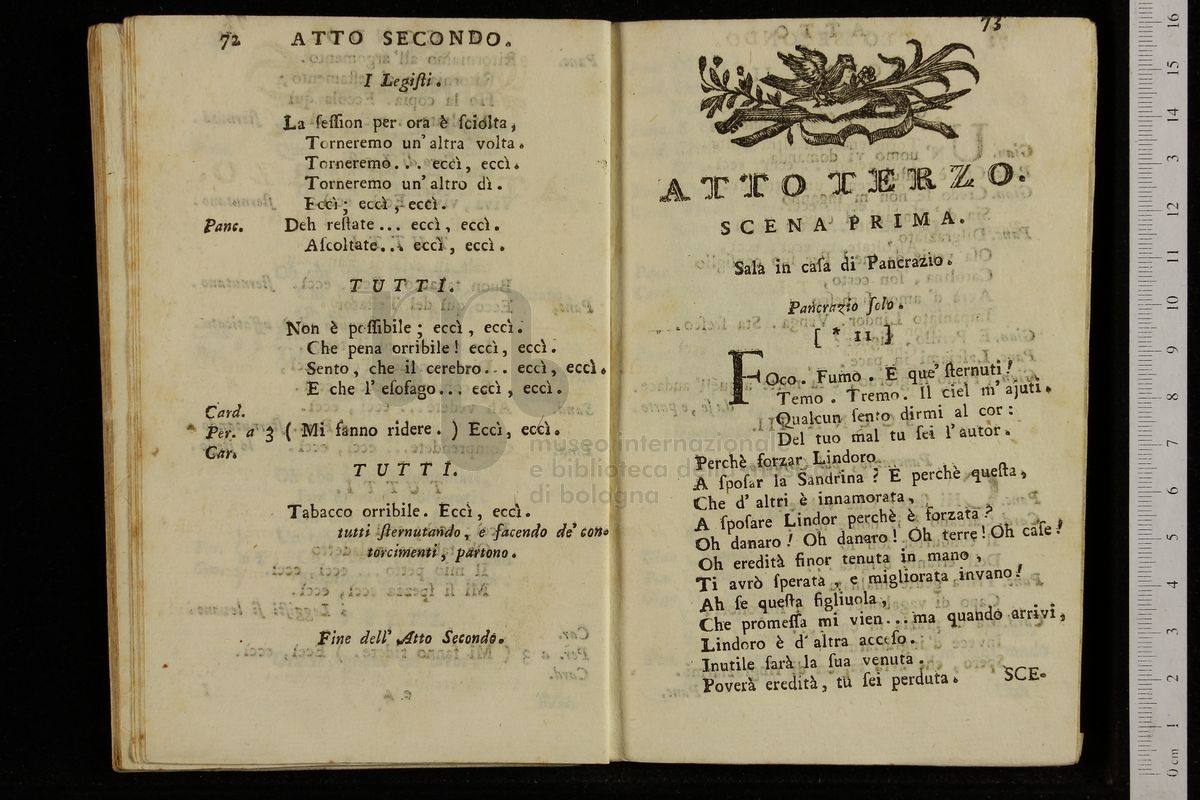 72 ATTO SECONDO.
I Legiſti.
La ſeſſion per ora è ſciolta,
Torneremo un' altra volta.
Torneremo... eccì, eccì.
Torneremo un' altro dì.
Eccì; eccì, eccì.
Panc. Deh reſtate... eccì, eccì.
Aſcoltate... eccì, eccì.
TUTTI.
Non è poſſibile; eccì, eccì.
Che pena orribile! eccì, eccì.
Sento, che il cerebro... eccì, eccì.
E che l' eſofago... eccì, eccì.
Card.
Per. a 3 ( Mi fanno ridere. ) Eccì, eccì.
Car.
TUTTI.
Tabacco orribile. Eccì, eccì.
tutti ſternutando, e facendo de' con-
torcimenti, partono.
Fine dell' Atto Secondo.
73
ATTO TERZO.
SCENA PRIMA.
Sala in caſa di Pancrazio.
Pancrazio ſolo.
[ * 11 ]
FOco. Fumo. E que' ſternuti!
Temo. Tremo. Il ciel m' ajuti.
Qualcun ſento dirmi al cor:
Del tuo mal tu ſei l' autor.
Perchè forzar Lindoro
A ſpoſar la Sandrina? E perchè queſta,
Che d' altri è innamorata,
A ſpoſare Lindor perchè è forzata?
Oh danaro! Oh danaro! Oh terre! Oh caſe!
Oh eredità finor tenuta in mano,
Ti avrò ſperata, e migliorata invano!
Ah ſe queſta figliuola,
Che promeſſa mi vien... ma quando arrivi,
Lindoro è d' altra acceſo.
Inutile ſarà la ſua venuta.
Poverà eredità, tu ſei perduta.
SCE-
museo internazionale
e biblioteca della musica
di bologna
0 cm 1 2 3 4 5 6 7 8 9 10 11 12 13 14 15 16